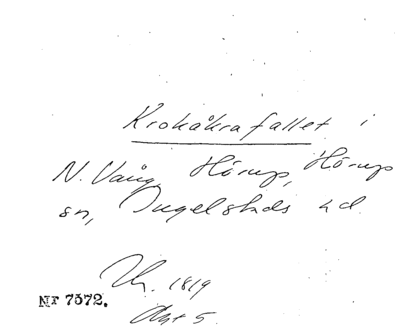 Krokåkrafallet i
N. Vång Hörup, Hörups
sn, Ingelstads hd.
1819
Akt 5.
Nr 7572.